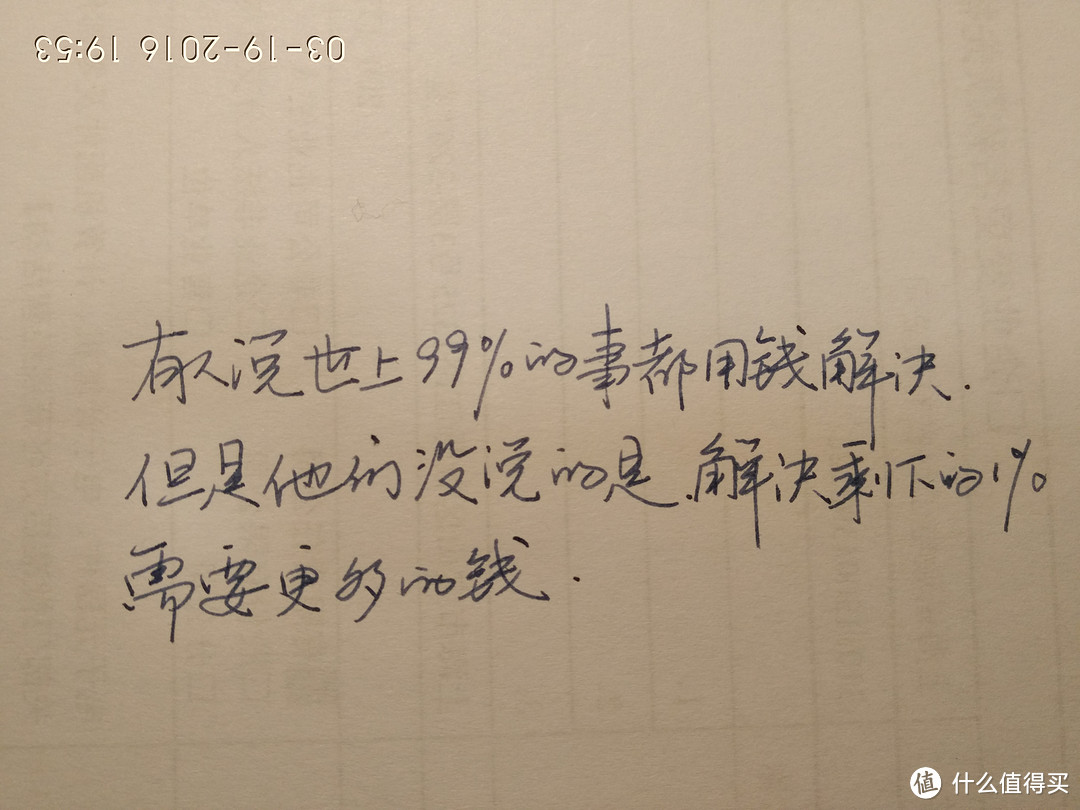 03-19-2016 19:53
有人说世上99%的事都用钱解决.
但是他们没说的是.解决剩下的1%
需要更多的钱.
值 什么值得买